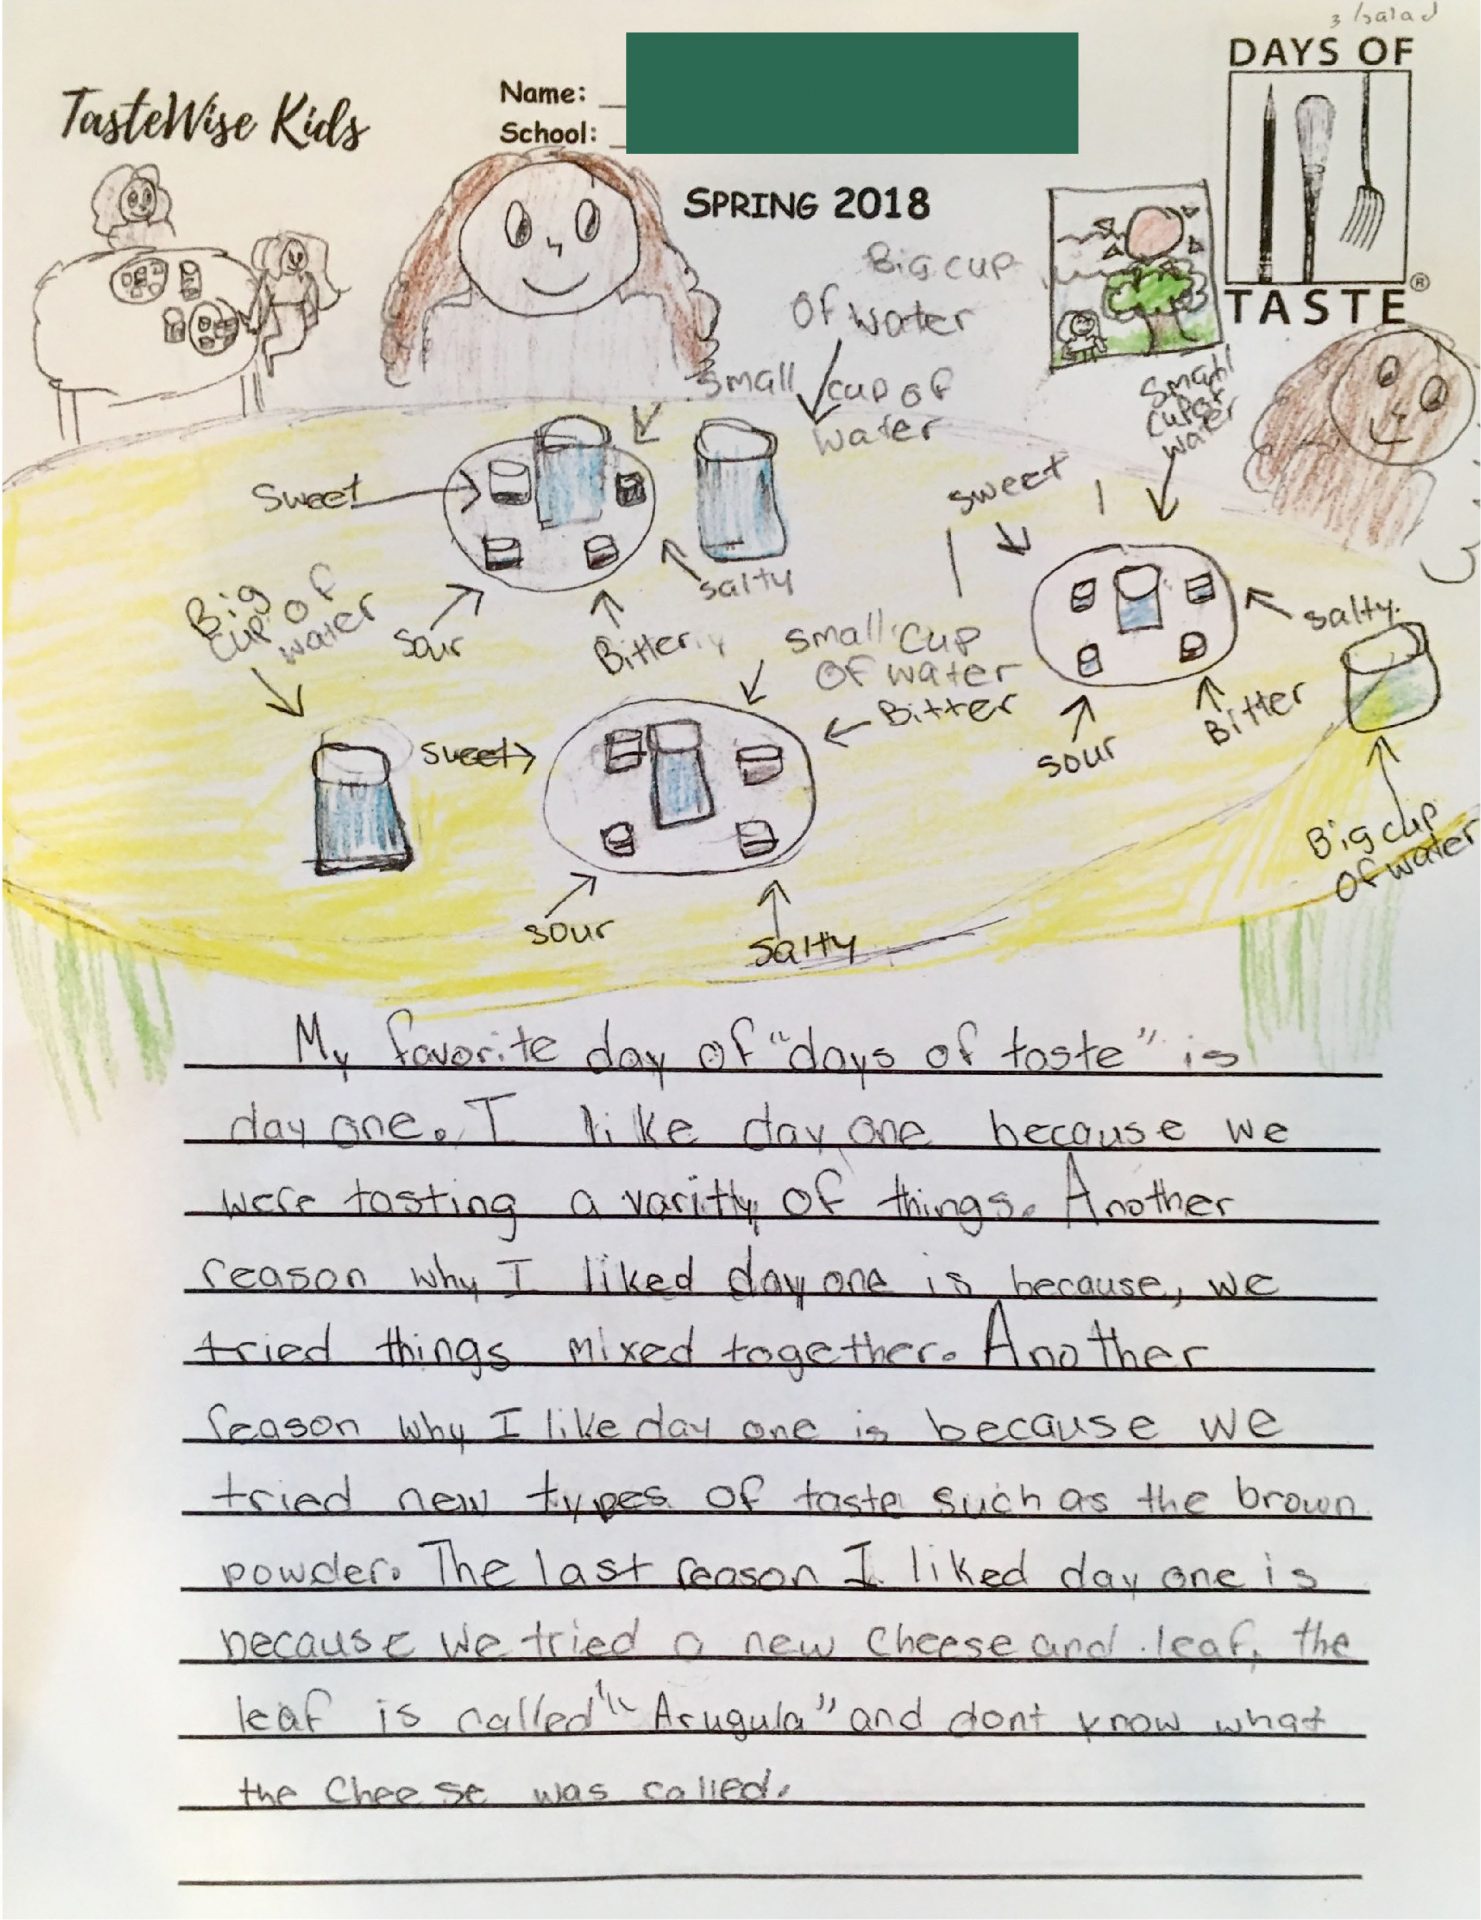 3 /salad
DAYS OF
TASTE®
TasteWise Kids
Name:
School:
SPRING 2018
Big cup
of water
small cup of
water
small
cup of
water
sweet
sweet
salty
salty
Big
cup of
water
sour
Bitter
small cup
of water
Bitter
sweet
sour
Bitter
Big cup
of water
sour
salty
My favorite day of "days of taste" is
day one. I like day one because we
were tasting a varitty of things. Another
reason why I liked day one is because, we
tried things mixed together. Another
reason why I like day one is because we
tried new types of taste such as the brown
powder. The last reason I liked day one is
because we tried a new cheese and leaf, the
leaf is called "Arugula" and dont know what
the cheese was called.